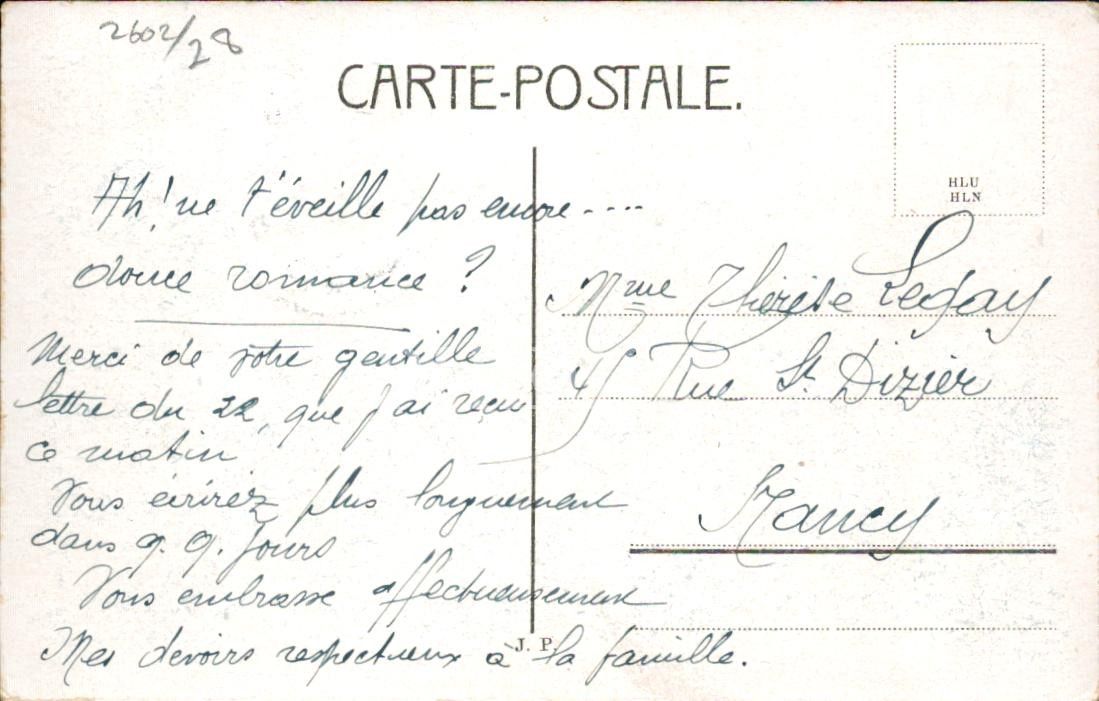 2602/28
CARTE-POSTALE.
HLU
HLN
Ah! ne t'éveille pas encore....
douce romance ?
Merci de votre gentille
lettre du 22, que j'ai reçu
ce matin
Vous écrirez plus longuement
dans q.q. jours
Vous embrasse affectueusement
Mes devoirs respectueux à la famille.
J. P.
Mme Thérèse Legay
45 Rue St Dizier
Nancy